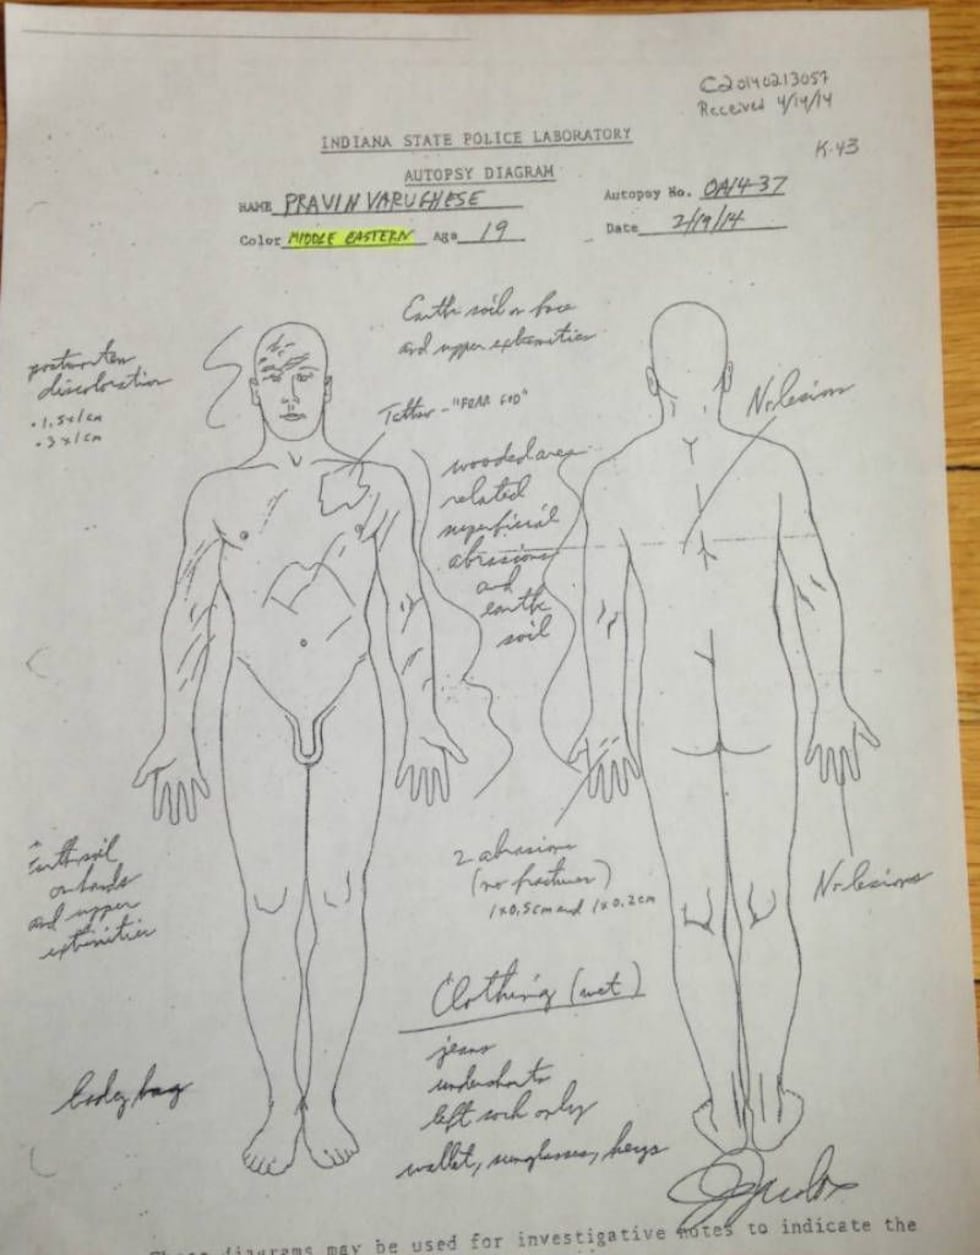 C20140213057
Received 4/14/14
K-43
INDIANA STATE POLICE LABORATORY
AUTOPSY DIAGRAM
NAME PRAVIN VARUGHESE
Autopsy No. OA14-37
Color MIDDLE EASTERN Age 19
Date 2/19/14
Earth soil on face
and upper extremities
postmortem
discoloration
• 1.5x1cm
• 3x1cm
Tattoo - "FEAR GOD"
No lesions
wooded area
related
superficial
abrasions
and
earth
soil
Earth soil
on hands
and upper
extremities
2 abrasions
(no fractures)
1x0.5cm and 1x0.2cm
No lesions
Clothing (wet)
jeans
undershorts
left sock only
wallet, sunglasses, keys
body bag
These diagrams may be used for investigative notes to indicate the